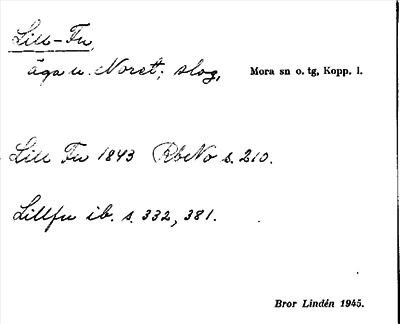 Lill-Fu,
äga u. Noret; slog,
Mora sn o. tg, Kopp. l.
Lill Fu 1843 RbNo s. 210.
Lillfu ib. s. 332, 381.
Bror Lindén 1945.